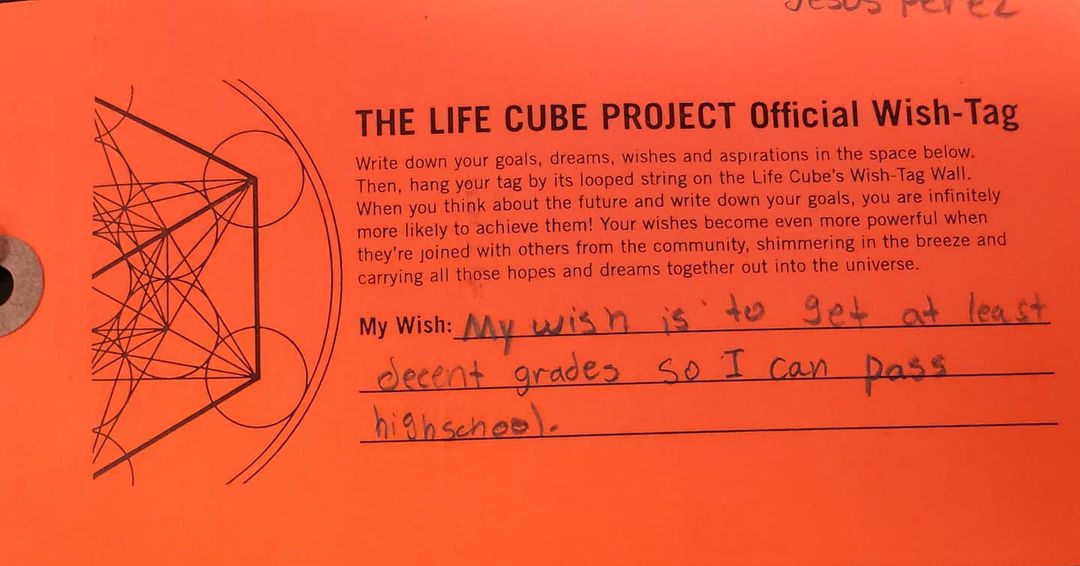 Jesus Perez
THE LIFE CUBE PROJECT Official Wish-Tag
Write down your goals, dreams, wishes and aspirations in the space below.
Then, hang your tag by its looped string on the Life Cube's Wish-Tag Wall.
When you think about the future and write down your goals, you are infinitely
more likely to achieve them! Your wishes become even more powerful when
they're joined with others from the community, shimmering in the breeze and
carrying all those hopes and dreams together out into the universe.
My Wish: My wish is to get at least
decent grades so I can pass
highschool.